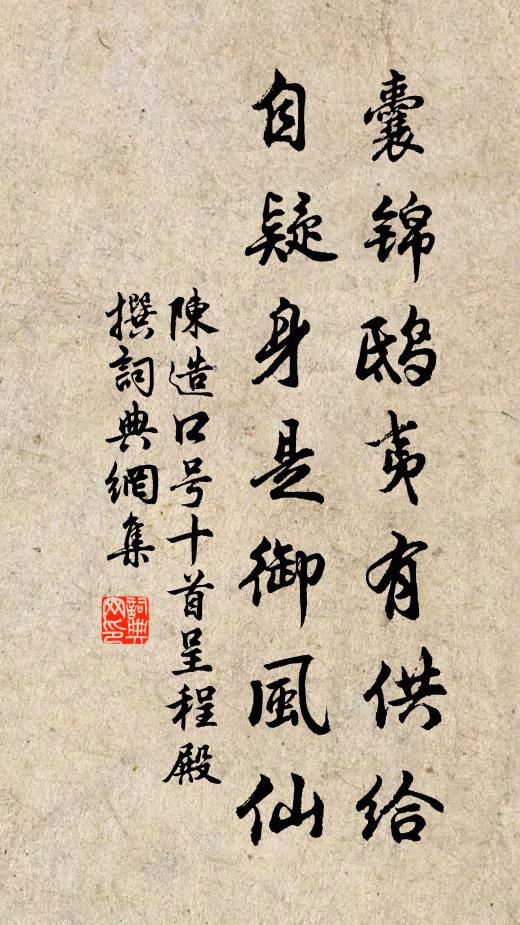 囊錦鴟夷有供給
自疑身是御風仙
陳造口号十首呈程殿
撰詞典網集
詞典网印